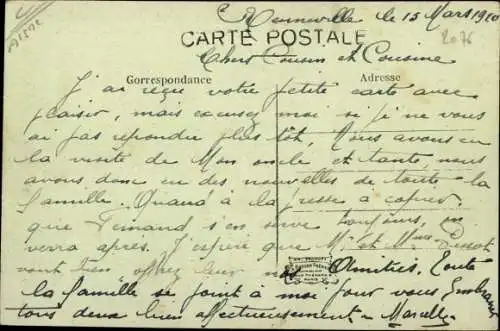 le 15 Mars 1920
AISNE
2076
CARTE POSTALE
Chers Cousin et Cousine
Correspondance
Adresse
J'ai reçu votre petite carte avec
plaisir, mais excusez moi si je ne vous
ai pas repondre plus tôt, Nous avons eu
la visite de Mon oncle et tante, nous
avons donc eu des nouvelles de toute la
famille. Quand à la presse à copier,
que Fernand s'en serve toujours, on
verra après. J'espère que M. et Mme
vont bien leur nos Amitiés, Toute
la famille se joint à moi pour vous Embrasser
tous deux bien affectueusement. Marcelle